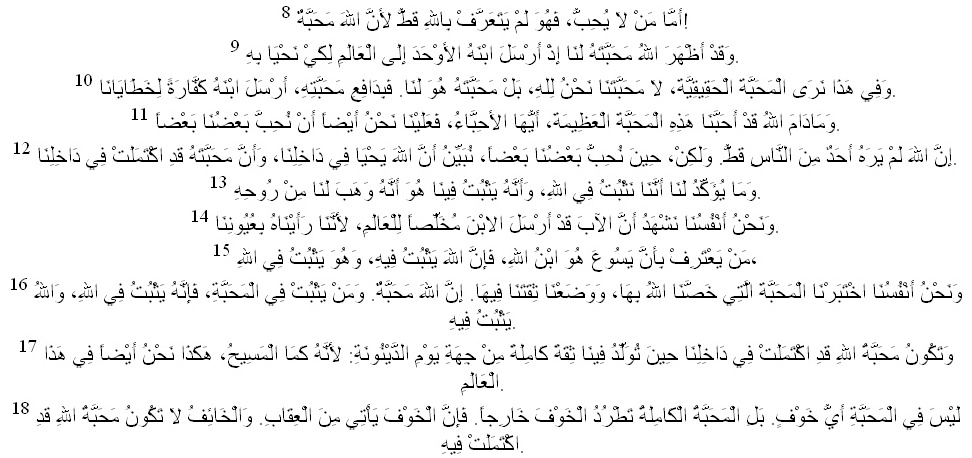 8 أَمَّا مَنْ لاَ يُحِبُّ، فَهُوَ لَمْ يَتَعَرَّفْ بِاللهِ قَطُّ لأَنَّ اللهَ مَحَبَّةٌ!
9 وَقَدْ أَظْهَرَ اللهُ مَحَبَّتَهُ لَنَا إِذْ أَرْسَلَ ابْنَهُ الأَوْحَدَ إِلَى الْعَالَمِ لِكَيْ نَحْيَا بِهِ.
10 وَفِي هَذَا نَرَى الْمَحَبَّةَ الْحَقِيقِيَّةَ، لاَ مَحَبَّتَنَا نَحْنُ لِلهِ، بَلْ مَحَبَّتَهُ هُوَ لَنَا. فَبِدَافِعِ مَحَبَّتِهِ، أَرْسَلَ ابْنَهُ كَفَّارَةً لِخَطَايَانَا.
11 وَمَادَامَ اللهُ قَدْ أَحَبَّنَا هَذِهِ الْمَحَبَّةَ الْعَظِيمَةَ، أَيُّهَا الأَحِبَّاءُ، فَعَلَيْنَا نَحْنُ أَيْضاً أَنْ نُحِبَّ بَعْضُنَا بَعْضاً.
12 إِنَّ اللهَ لَمْ يَرَهُ أَحَدٌ مِنَ النَّاسِ قَطُّ. وَلكِنْ، حِينَ نُحِبُّ بَعْضُنَا بَعْضاً، نُبَيِّنُ أَنَّ اللهَ يَحْيَا فِي دَاخِلِنَا، وَأَنَّ مَحَبَّتَهُ قَدِ اكْتَمَلَتْ فِي دَاخِلِنَا.
13 وَمَا يُؤَكِّدُ لَنَا أَنَّنَا نَثْبُتُ فِي اللهِ، وَأَنَّهُ يَثْبُتُ فِينَا هُوَ أَنَّهُ وَهَبَ لَنَا مِنْ رُوحِهِ.
14 وَنَحْنُ أَنْفُسُنَا نَشْهَدُ أَنَّ الآبَ قَدْ أَرْسَلَ الابْنَ مُخَلِّصاً لِلْعَالَمِ، لأَنَّنَا رَأَيْنَاهُ بِعُيُونِنَا.
15 مَنْ يَعْتَرِفْ بِأَنَّ يَسُوعَ هُوَ ابْنُ اللهِ، فَإِنَّ اللهَ يَثْبُتُ فِيهِ، وَهُوَ يَثْبُتُ فِي اللهِ،
16 وَنَحْنُ أَنْفُسُنَا اخْتَبَرْنَا الْمَحَبَّةَ الَّتِي خَصَّنَا اللهُ بِهَا، وَوَضَعْنَا ثِقَتَنَا فِيهَا. إِنَّ اللهَ مَحَبَّةٌ. وَمَنْ يَثْبُتْ فِي الْمَحَبَّةِ، فَإِنَّهُ يَثْبُتُ فِي اللهِ، وَاللهُ
يَثْبُتُ فِيهِ.
17 وَتَكُونُ مَحَبَّةُ اللهِ قَدِ اكْتَمَلَتْ فِي دَاخِلِنَا حِينَ تُوَلِّدُ فِينَا ثِقَةً كَامِلَةً مِنْ جِهَةِ يَوْمِ الدَّيْنُونَةِ: لأَنَّهُ كَمَا الْمَسِيحُ، هَكَذَا نَحْنُ أَيْضاً فِي هَذَا
الْعَالَمِ.
18 لَيْسَ فِي الْمَحَبَّةِ أَيُّ خَوْفٍ. بَلِ الْمَحَبَّةُ الْكَامِلَةُ تَطْرُدُ الْخَوْفَ خَارِجاً. فَإِنَّ الْخَوْفَ يَأْتِي مِنَ الْعِقَابِ. وَالْخَائِفُ لاَ تَكُونُ مَحَبَّةُ اللهِ قَدِ
اكْتَمَلَتْ فِيهِ.